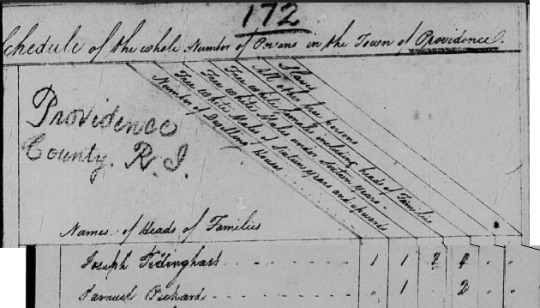 172
Schedule of the whole Number of Persons in the Town of Providence.
Slaves
All other free persons
Free white Females including heads of Families
Free white Males under sixteen years
Free white Males of sixteen years and upwards
Number of Dwelling Houses
Providence
County. R. I.
Names of Heads of Families
Joseph Tillinghast 1 1 2 4 . .
Samuel Pickard . 1 2 . .